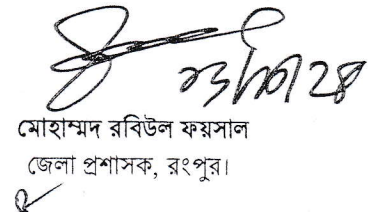 মোহাম্মদ রবিউল ফয়সাল
জেলা প্রশাসক, রংপুর।